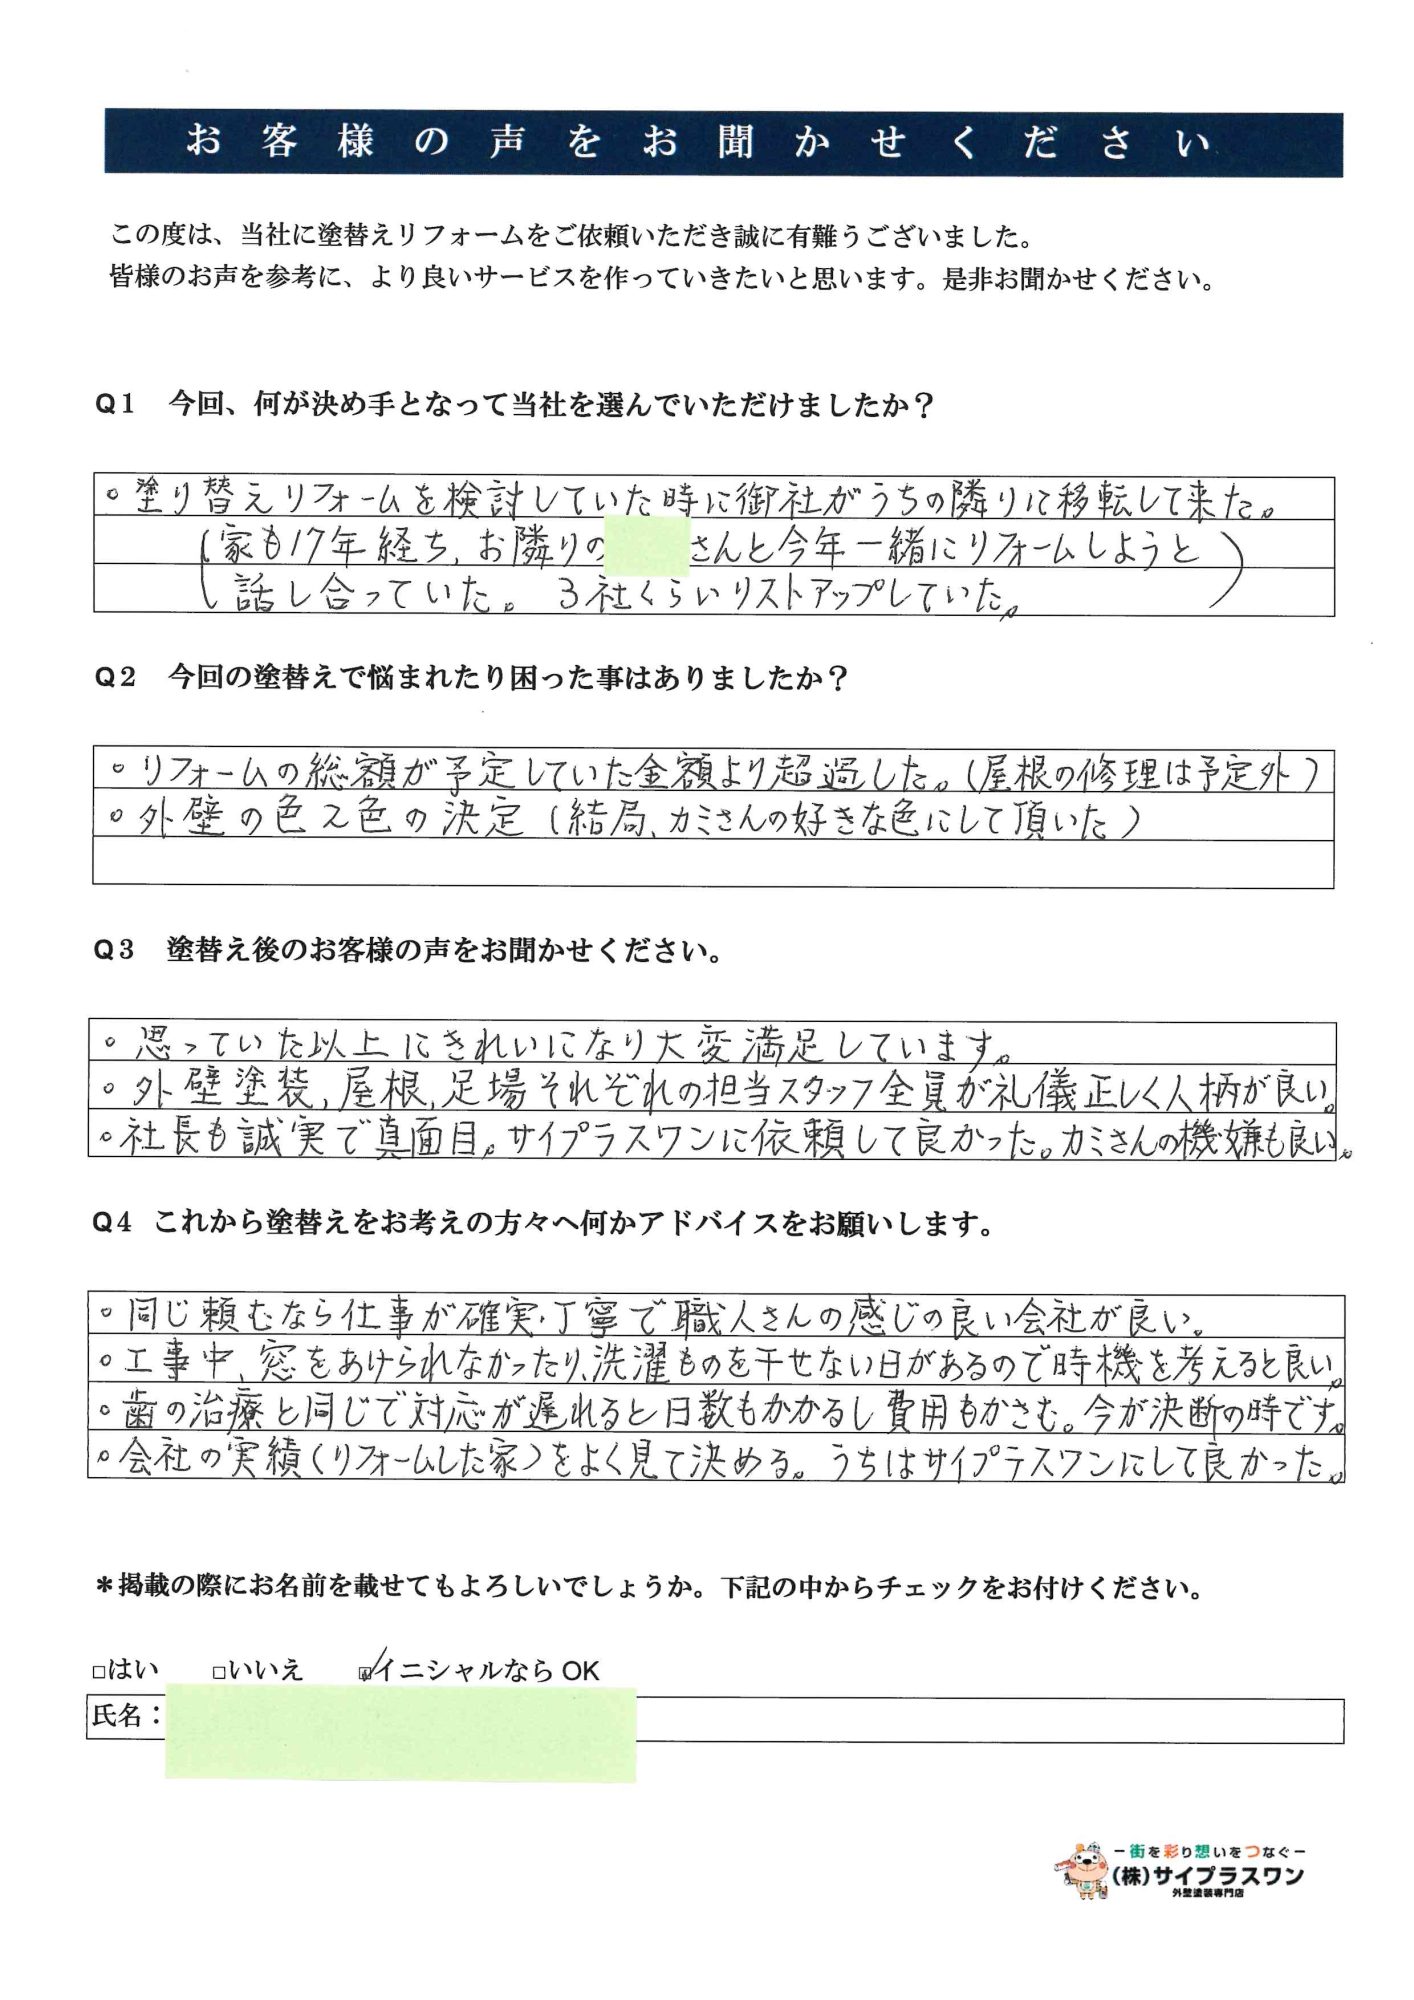 お客様の声をお聞かせください
この度は、当社に塗替えリフォームをご依頼いただき誠に有難うございました。
皆様のお声を参考に、より良いサービスを作っていきたいと思います。是非お聞かせください。
Q1 今回、何が決め手となって当社を選んでいただけましたか？
○塗り替えリフォームを検討していた時に御社がうちの隣りに移転して来た。
(家も17年経ち、お隣りの さんと今年一緒にリフォームしようと
話し合っていた。 3社くらいリストアップしていた。)
Q2 今回の塗替えで悩まれたり困った事はありましたか？
○リフォームの総額が予定していた金額より超過した。(屋根の修理は予定外)
○外壁の色2色の決定(結局、カミさんの好きな色にして頂いた)
Q3 塗替え後のお客様の声をお聞かせください。
○思っていた以上にきれいになり大変満足しています。
○外壁塗装,屋根,足場それぞれの担当スタッフ全員が礼儀正しく人柄が良い。
○社長も誠実で真面目。サイプラスワンに依頼して良かった。カミさんの機嫌も良い。
Q4 これから塗替えをお考えの方々へ何かアドバイスをお願いします。
○同じ頼むなら仕事が確実・丁寧で職人さんの感じの良い会社が良い。
○工事中、窓をあけられなかったり、洗濯ものを干せない日があるので時機を考えると良い。
○歯の治療と同じで対応が遅れると日数もかかるし費用もかさむ。今が決断の時です。
○会社の実績(リフォームした家)をよく見て決める。うちはサイプラスワンにして良かった。
＊掲載の際にお名前を載せてもよろしいでしょうか。下記の中からチェックをお付けください。
□はい □いいえ ☑イニシャルなら OK
氏名：
－街を彩り想いをつなぐ－
(株)サイプラスワン
外壁塗装専門店